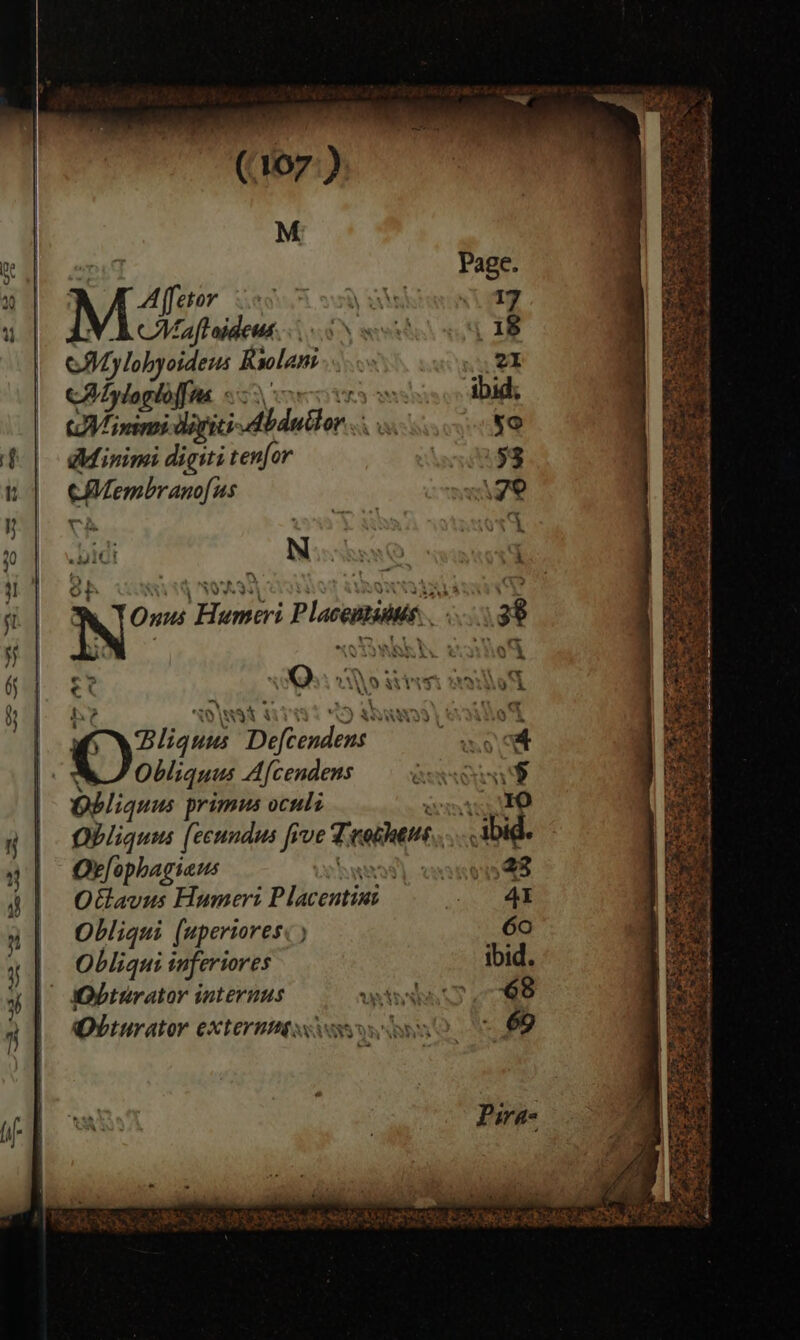 (107)
M
Page.
MAssetor 17
Mastoideus. 18
Mylohyoideus Riolani 21
Myloglossus ibid.
Minimi digiti Abductor 50
Minimi digiti tensor 53
Membranosus 79
N
NOnus Humeri Placentinus. 38
O
OBliquus Descendens 4
Obliquus Ascendens 5
Obliquus primus oculi 10
Obliquus secundus sive Trocheus ibid.
Oesophagiaeus 23
Octavus Humeri Placentini 41
Obliqui superiores 60
Obliqui inferiores ibid.
Obturator internus 68
Obturator externus 69
Pira-